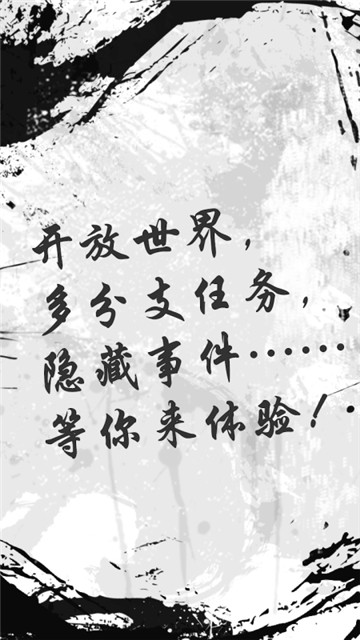 开放世界，
多分支任务，
隐藏事件……
等你来体验！